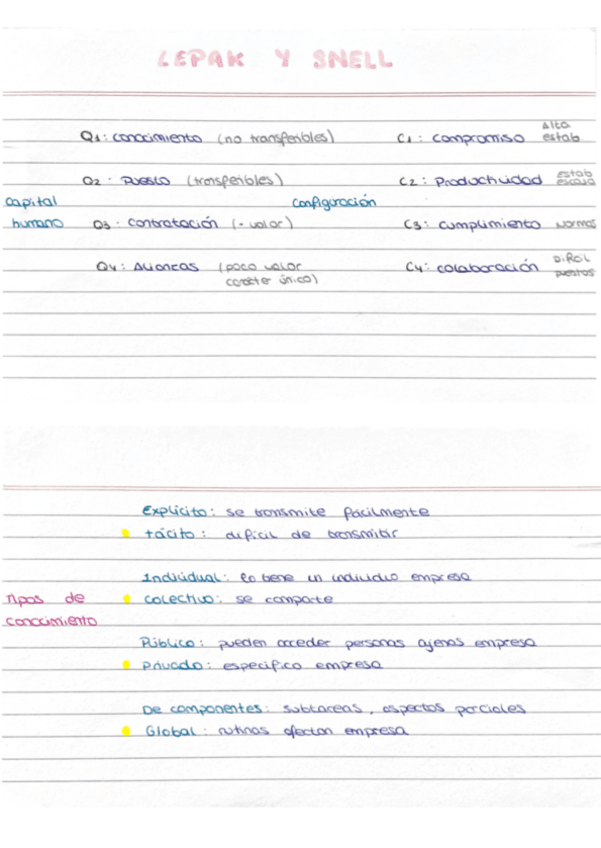 LEPAK Y SNELL
Q1: conocimiento (no transferibles) C1: compromiso Alta estab.
Q2: Puesto (transferibles) C2: Productividad estab escasa
capital configuración
humano Q3: contratación (- valor) C3: cumplimiento normas
Q4: Alianzas (poco valor C4: colaboración Difícil puestos
carácter único)
Explícito: se transmite fácilmente
tácito: difícil de transmitir
Individual: lo tiene un individuo empresa
Tipos de colectivo: se comparte
conocimiento
Público: pueden acceder personas ajenas empresa
Privado: específico empresa
De componentes: subtareas, aspectos parciales
Global: rutinas afectan empresa